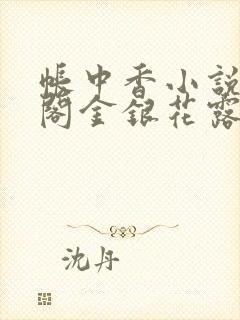 帳中香小說
閣金銀花露
沈丹